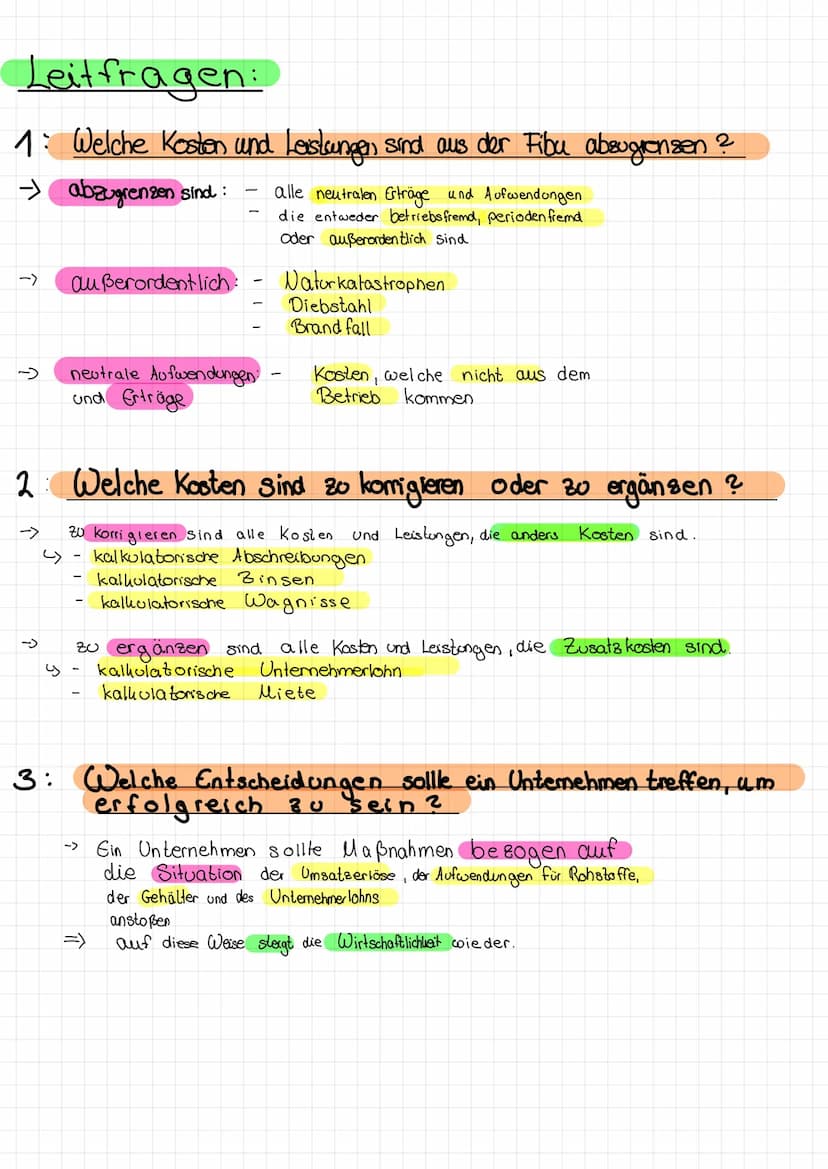 Leitfragen:
1: Welche Kosten und Leistungen sind aus der Fibu abzugrenzen?
→ abzugrenzen sind: - alle neutralen Erträge und Aufwendungen
- die entweder betriebsfremd, periodenfremd
oder außerordentlich sind
→ außerordentlich: - Naturkatastrophen
- Diebstahl
- Brandfall
→ neutrale Aufwendungen: - Kosten, welche nicht aus dem
und Erträge Betrieb kommen
2: Welche Kosten sind zu korrigieren oder zu ergänzen?
→ zu korrigieren sind alle Kosten und Leistungen, die anders Kosten sind.
↳ - kalkulatorische Abschreibungen
- kalkulatorische Zinsen
- kalkulatorische Wagnisse
→ zu ergänzen sind alle Kosten und Leistungen, die Zusatzkosten sind.
↳ - kalkulatorische Unternehmerlohn
- kalkulatorische Miete
3: Welche Entscheidungen sollte ein Unternehmen treffen, um
erfolgreich zu sein?
→ Ein Unternehmen sollte Maßnahmen bezogen auf
die Situation der Umsatzerlöse, der Aufwendungen für Rohstoffe,
der Gehälter und des Unternehmerlohns
anstoßen
⇒ auf diese Weise steigt die Wirtschaftlichkeit wieder.